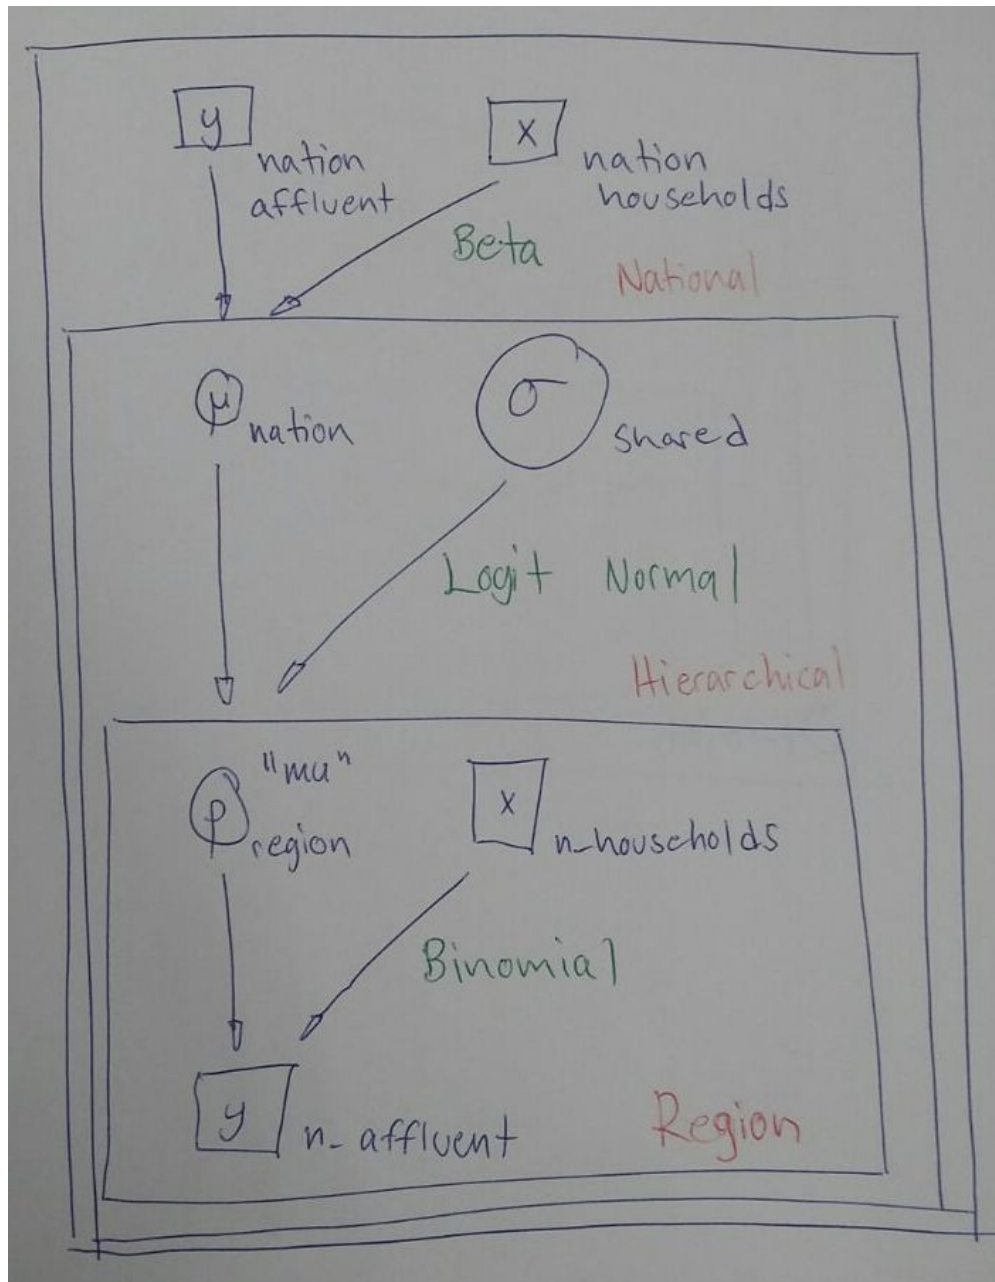 y
nation
affluent
x
nation
households
Beta
National
μ nation
σ shared
Logit Normal
Hierarchical
"mu"
ρ region
x n_households
Binomial
y n_affluent
Region